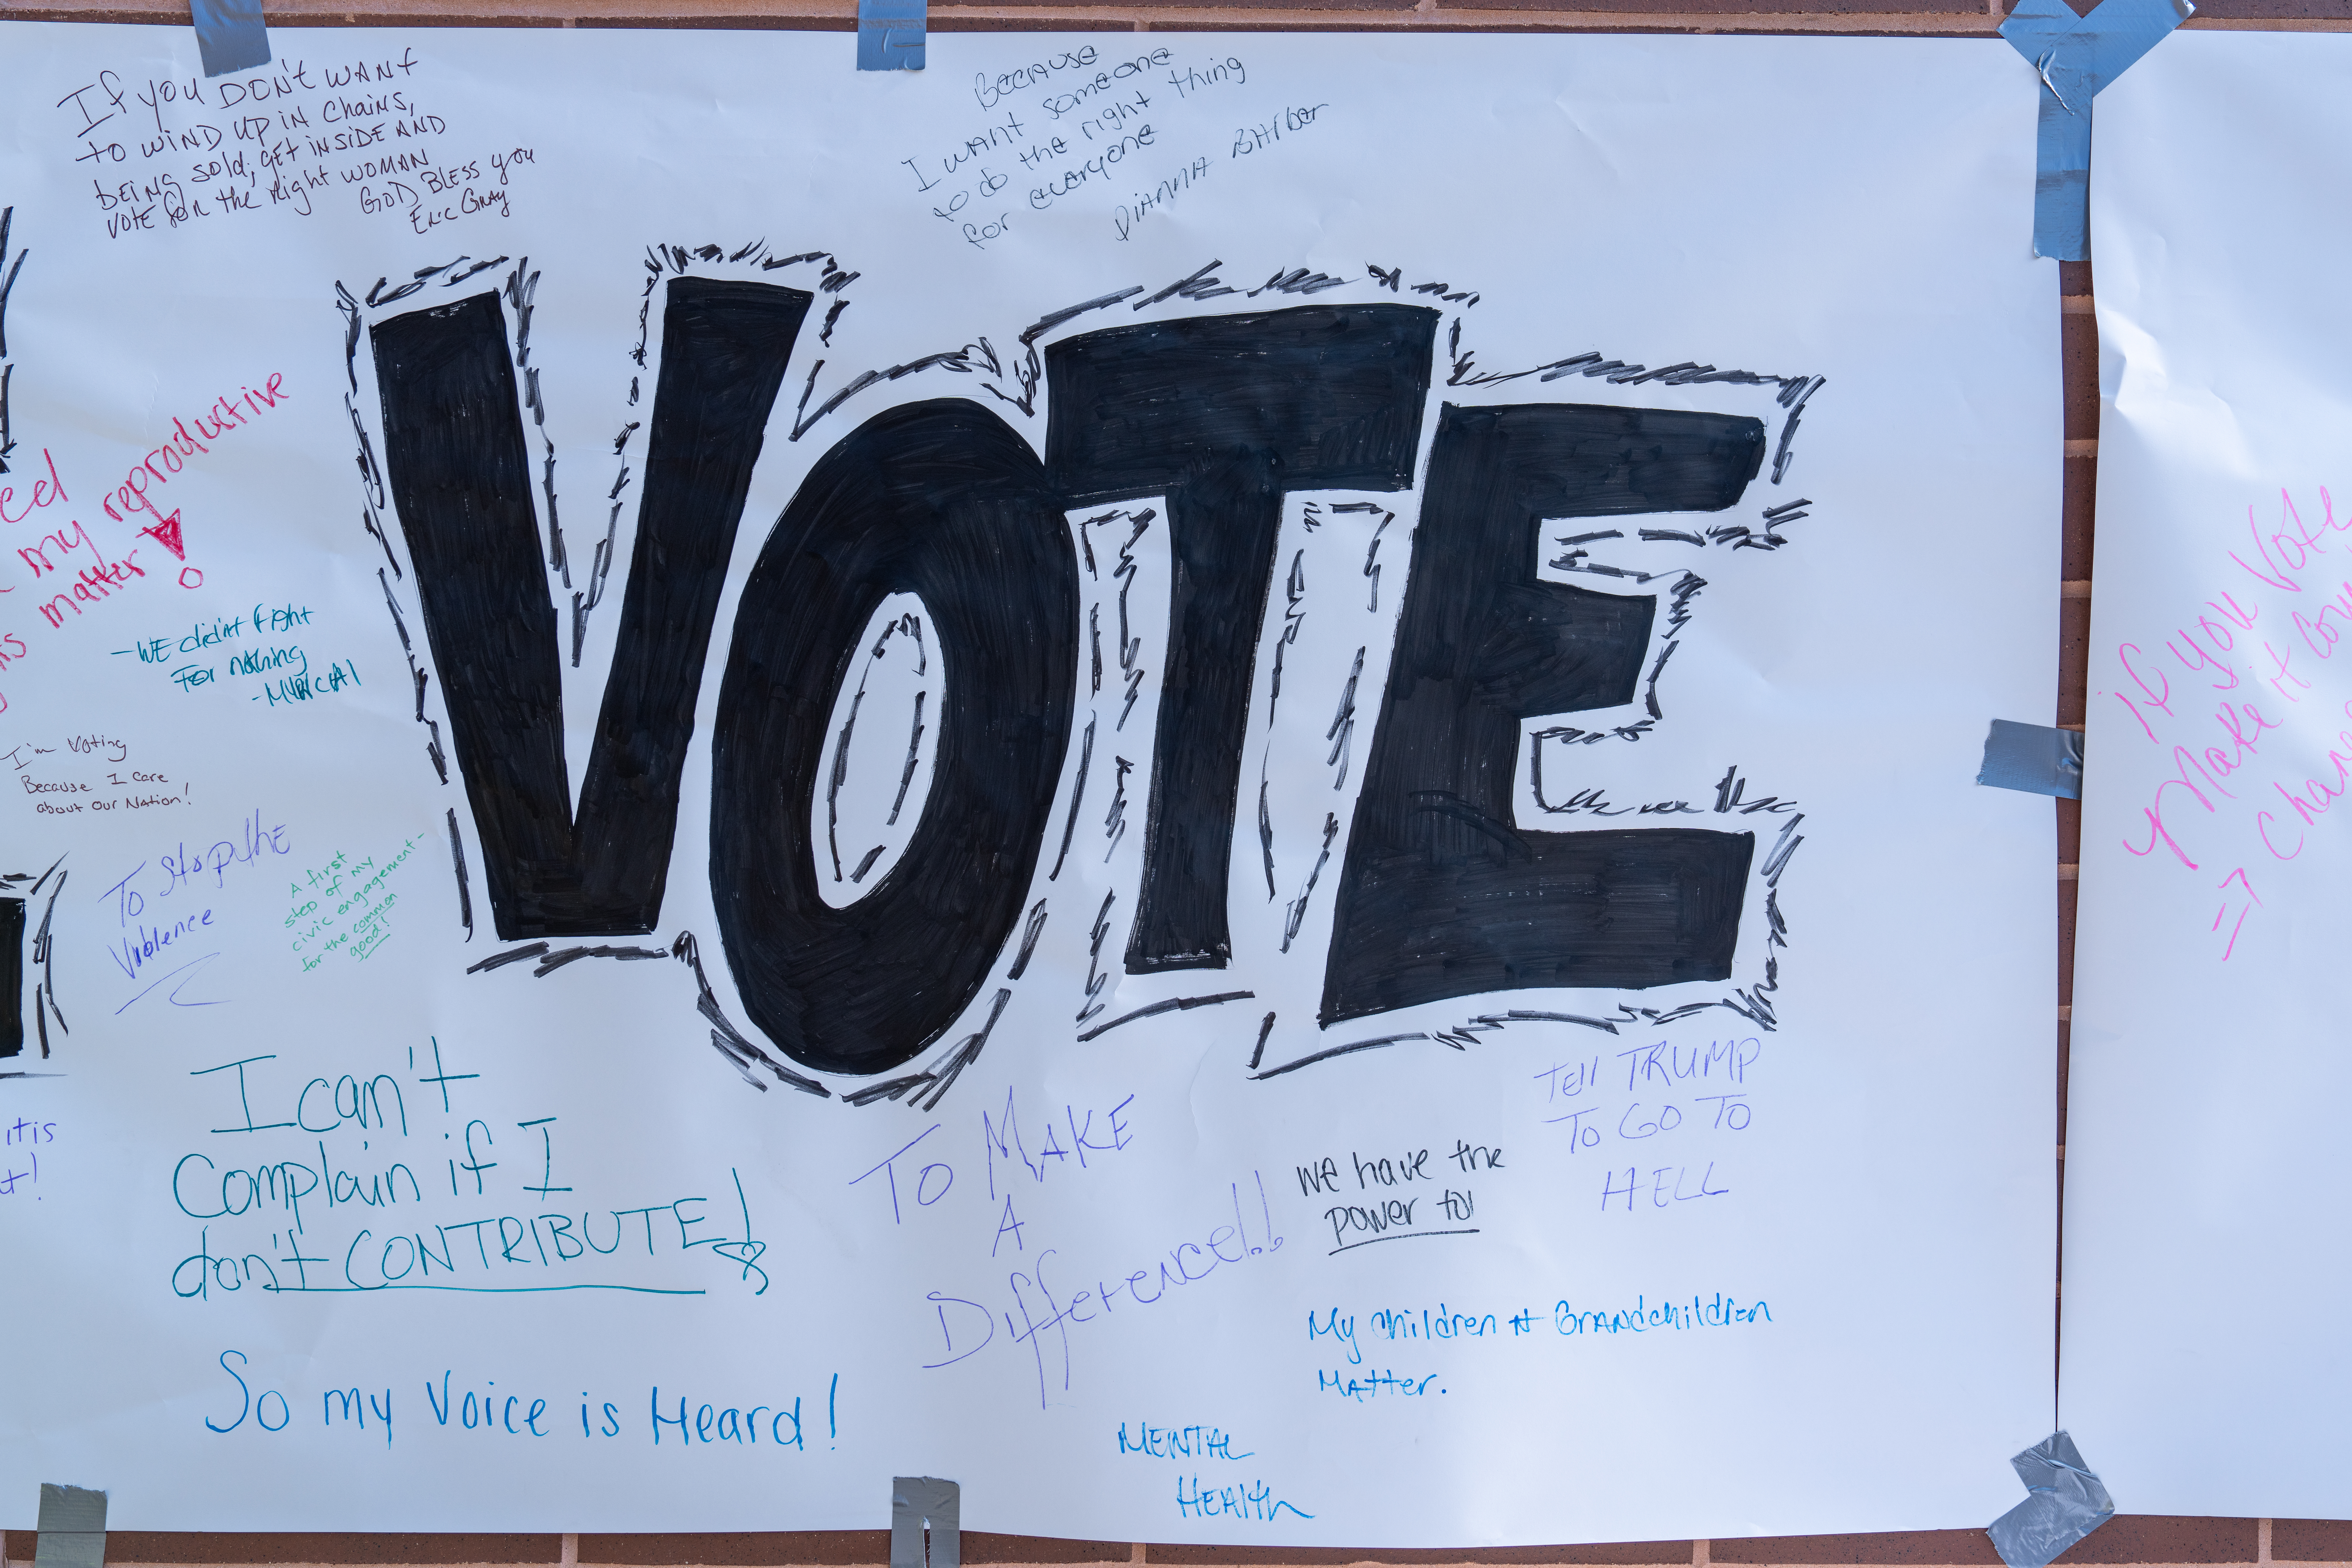 If you DON'T WANT
to WIND UP IN Chains,
bEING sold; gET INSIDE AND
VOTE for the right WOMAN
GOD BLESS you
Eric Gray
BECAUSE
I WANT someone
to do the right thing
for everyone
DIANNA BARBER
VOTE
my reproductive
matter !
-WE didn't fight
For nothing
I'm Voting
Because I care
about our Nation!
To Stop the
Violence
A first
step of my
civic engagement-
for the common
good!
I can't
Complain if I
don't CONTRIBUTE!
So my Voice is Heard!
itis
To MAKE
A
Difference!!
We have the
power to!
Tell TRUMP
To GO TO
HELL
My children & Grandchildren
Matter.
MENTAL
HEAlth
if you Vote
Make it
=>